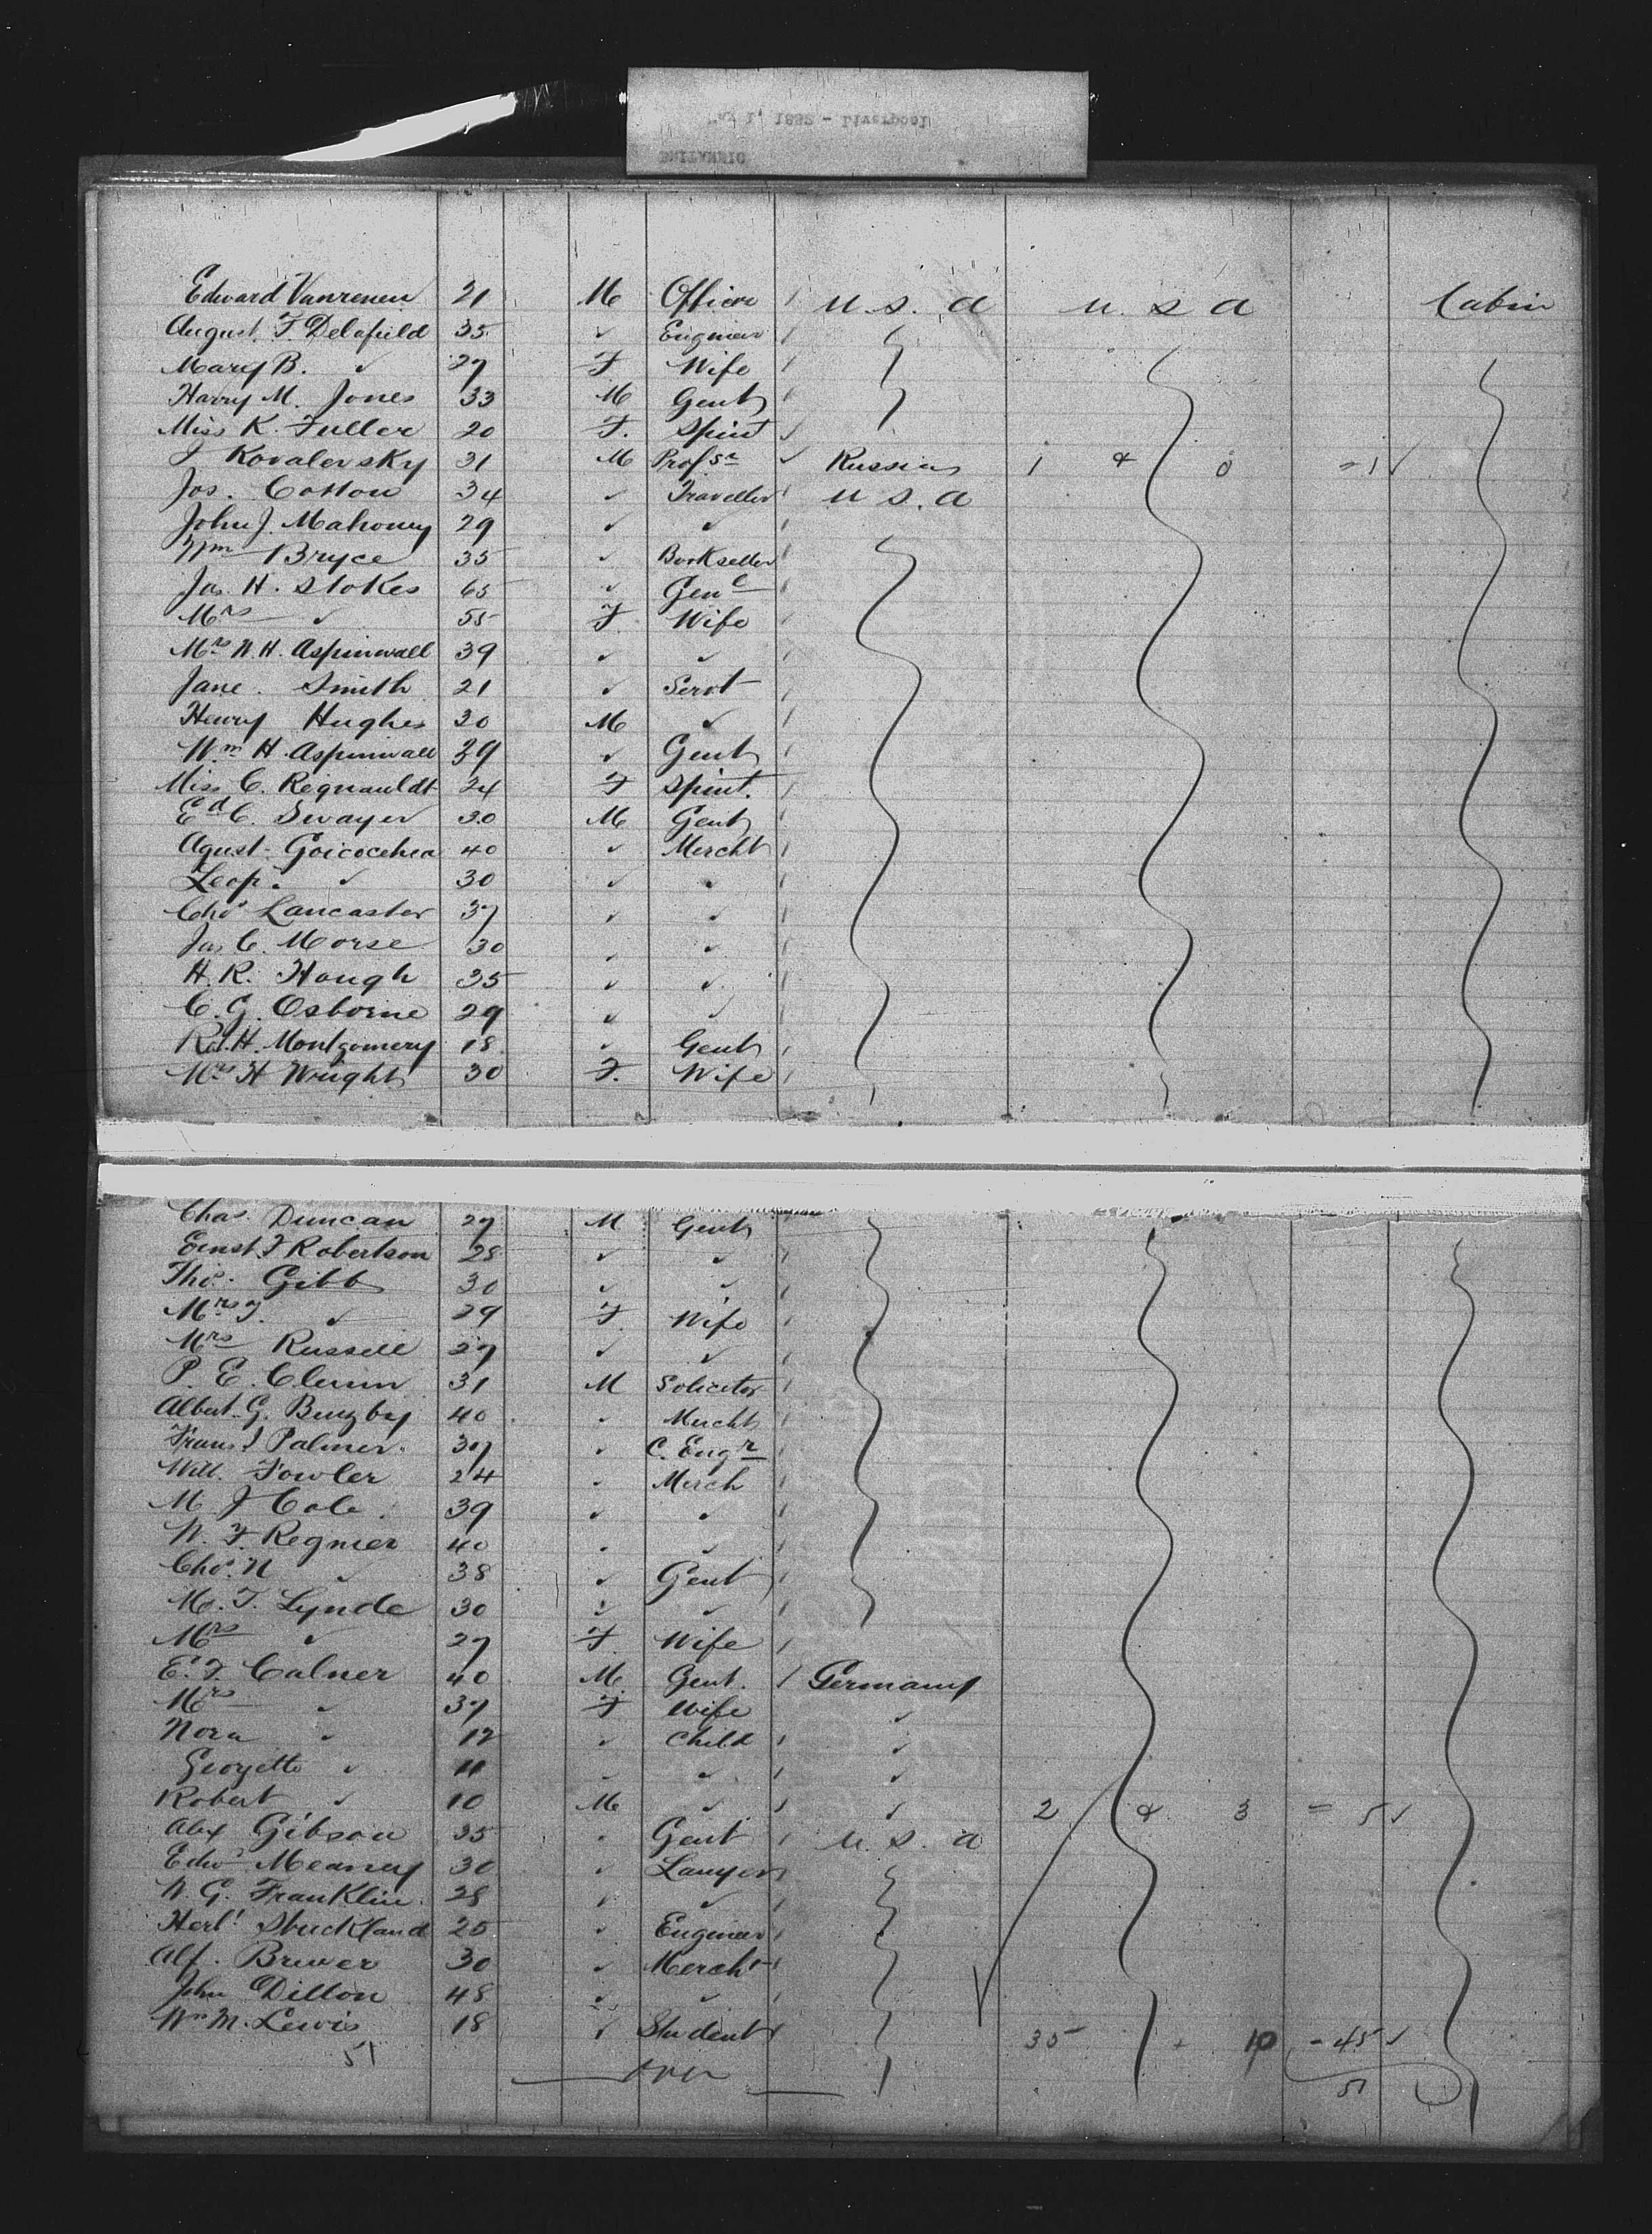 May 1, 1882 - Liverpool
BRITANNIC
Edward Vanrenen 21 M Officer U. S. A U. S A Cabin
August. F. Delafield 35 ✓ Engineer
Mary B. ✓ 27 F Wife
Harry M. Jones 33 M Gent
Miss K. Fuller 20 F. Spinst
J Kovalevsky 31 M Profsr Russia 1 & 0 = 1 ✓
Jos. Cotton 34 ✓ Traveller U S. A
John J. Mahoney 29 ✓ ✓
Wm Bryce 35 ✓ Bookseller
Jas. H. Stokes 65 ✓ Genl
Mrs ✓ 55 F. Wife
Mrs W. H. Aspinwall 39 ✓ ✓
Jane. Smith 21 ✓ Servt
Henry Hughes 30 M ✓
Wm H. Aspinwall 39 ✓ Gent
Miss C. Regnauldt 24 F Spint.
Ed C. Swayer 30 M Gent
Agust. Goicocehea 40 ✓ Mercht
Leop. ✓ 30 ✓ ✓
Chas Lancaster 37 ✓ ✓
Jas C. Morse 30 ✓ ✓
H. R. Hough 35 ✓ ✓
C. G. Osborne 29 ✓ ✓
Rd. H. Montgomery 18 ✓ Gent
Mrs H Wright 30 F. Wife
Chas. Duncan 27 M Gent
Ernst. F Robertson 28 ✓ ✓
Thos. Gibb 30 ✓ ✓
Mrs T. ✓ 29 F. Wife
Mrs Russell 27 ✓ ✓
P. E. Clunn 31 M Solicitor
Albert. G. Buzby 40 ✓ Mercht
Frans. J Palmer. 37 ✓ C. Engr
Will. Fowler 24 ✓ Merch
M J Cole 39 ✓ ✓
W. F. Regnier 40 ✓ ✓
Chas. N ✓ 38 ✓ Gent
M. T. Lynde 30 ✓ ✓
Mrs ✓ 27 F. Wife
E. F. Calner 40 M. Gent. Germany
Mrs ✓ 37 F Wife ✓
Nora ✓ 12 ✓ Child ✓
Geogette ✓ 11 ✓ ✓ ✓
Robert ✓ 10 M ✓ ✓ 2 & 3 = 5 ✓
Alex Gibson 35 ✓ Gent U. S. A
Edwd Meaney 30 ✓ Lawyer
W. G. Franklin 28 ✓ ✓
Herbt Stuckland 25 ✓ Engineer
Alf. Brewer 30 ✓ Mercht
John Dillon 48 ✓ ✓
Wm M. Lewis 18 ✓ Student 35 + 10 = 45 ✓
51 over 51